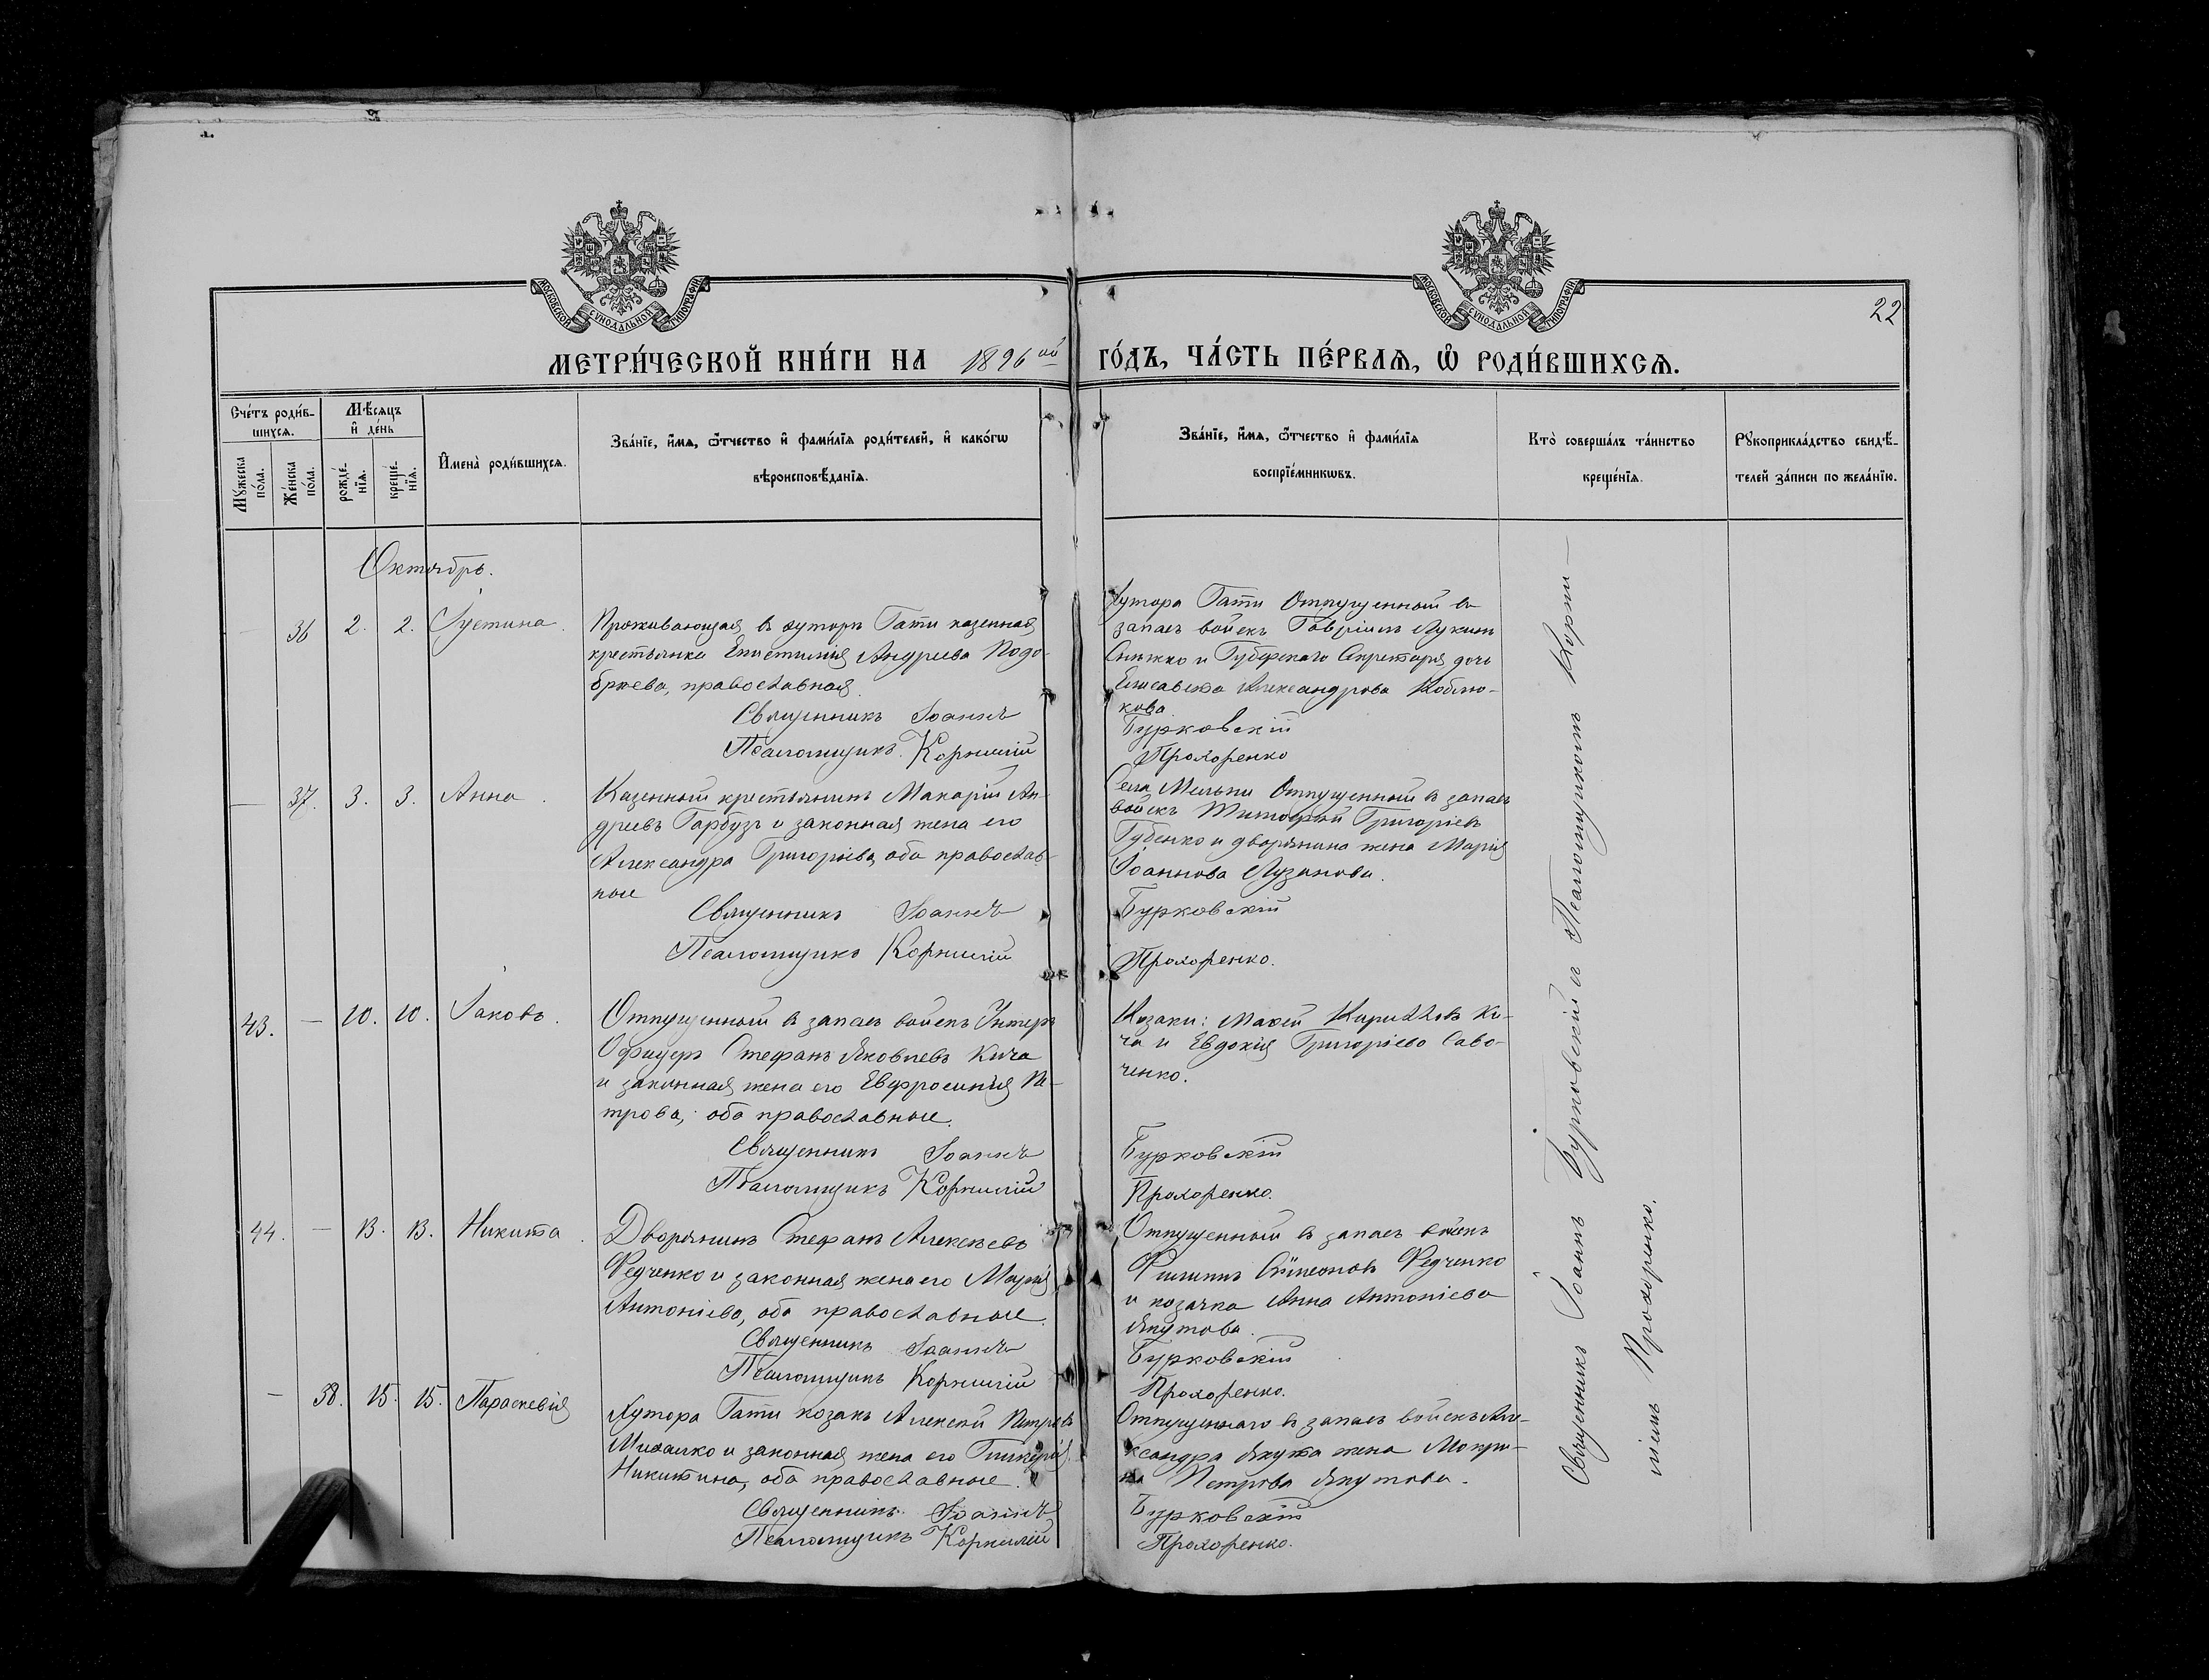 МОСКОВСКОЙ СУНОДАЛЬНОЙ ТИПОГРАФІИ
МОСКОВСКОЙ СУНОДАЛЬНОЙ ТИПОГРАФІИ
22
МЕТРИ́ЧЕСКОЙ КНИ́ГИ НА 1896 ой ГО́ДЪ, ЧА́СТЬ ПЕ́РВАѦ, Ѡ РОДИ́ВШИХСѦ.
Сче́тъ роди́в-
шихсѧ.
Мѣ́сѧцъ
и҆ де́нь
Мꙋ́жеска
по́ла.
Же́нска
по́ла.
рожде́-
нїѧ.
креще́-
нїѧ.
И҆мена̀ роди́вшихсѧ.
Зва́нїе, и҆́мѧ, ѻ҆́тчество и҆ фами́лїѧ роди́телей, и҆ како́гѡ
вѣроисповѣ́данїѧ.
Зва́нїе, и҆́мѧ, ѻ҆́тчество и҆ фами́лїѧ
воспрїе́мникѡвъ.
Кто̀ соверша́лъ та́инство
креще́нїѧ.
Рꙋкоприкла́дство свидѣ́-
телей за́писи по жела́нїю.
Октябрь.
— 36 2. 2. Іустина.
Проживающая въ хуторѣ Гати казенная
крестьянка Епистимія Андреева Подо-
бряева, православная.
Священникъ Іоаннъ
Псаломщикъ Корнилій
Хутора Гати Отпущенный въ
запасъ войскъ Гавріилъ Лукинъ
Снѣжко и Губерскаго Секретаря дочь
Елисавета Александрова Коблю-
кова
Бурковскій
Прохоренко
— 37. 3. 3. Анна.
Казенный крестьянинъ Макарій Ан-
дреевъ Гарбузъ и законная жена его
Александра Григорьева, оба православ-
ные
Священникъ Іоаннъ
Псаломщикъ Корнилій
Села Мельни Отпущенный въ запасъ
войскъ Тимофей Григоріевъ
Губенко и дворянина жена Марія
Іоаннова Лузанова.
Бурковскій
Прохоренко.
43. — 10. 10. Іаковъ.
Отпущенный въ запасъ войскъ Унтеръ
Офицеръ Стефанъ Яковлевъ Кича
и законная жена его Евфросинія Пе-
трова, оба православные.
Священникъ Іоаннъ
Псаломщикъ Корнилій
Козаки: Мафей Кирилловъ Ки-
ча и Евдокія Григоріева Саво-
ченко.
Бурковскій
Прохоренко.
44. — 13. 13. Никита.
Дворянинъ Стефанъ Алексѣевъ
Федченко и законная жена его Марія
Антоніева, оба православные.
Священникъ Іоаннъ
Псаломщикъ Корнилій
Отпущенный въ запасъ войскъ
Филиппъ Симеоновъ Федченко
и козачка Анна Антоніева
Якутова.
Бурковскій
Прохоренко.
— 38. 15. 15. Параскевія
Хутора Гати козакъ Алексѣй Петровъ
Михалко и законная жена его Гликерія
Никитина, оба православные.
Священникъ Іоаннъ
Псаломщикъ Корнилій
Отпущеннаго въ запасъ войскъ Але-
ксандра Якута жена Мокри-
на Петрова Якутова.
Бурковскій
Прохоренко.
Священникъ Іоаннъ Бурковскій съ Псаломщикомъ Корни-
ліемъ Прохоренко.